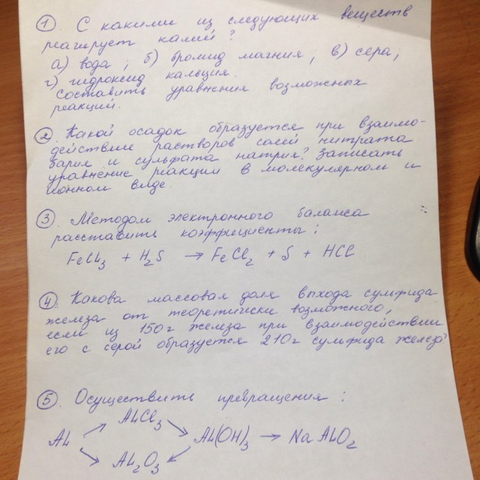 ① С какими из следующих веществ
реагирует калий?
а) вода; б) бромид магния; в) сера;
г) гидроксид кальция.
Составить уравнения возможных
реакций.
② Какой осадок образуется при взаимо-
действие растворов солей нитрата
бария и сульфата натрия? Записать
уравнение реакции в молекулярном и
ионном виде.
③ Методом электронного баланса
расставить коэффициенты:
FeCl₃ + H₂S → FeCl₂ + S + HCl
④ Какова массовая доля выхода сульфида
железа от теоретически возможного,
если из 150г железа при взаимодействии
его с серой образуется 210г сульфида железа?
⑤ Осуществить превращения:
AlCl₃
Al → Al(OH)₃ → NaAlO₂
Al₂O₃